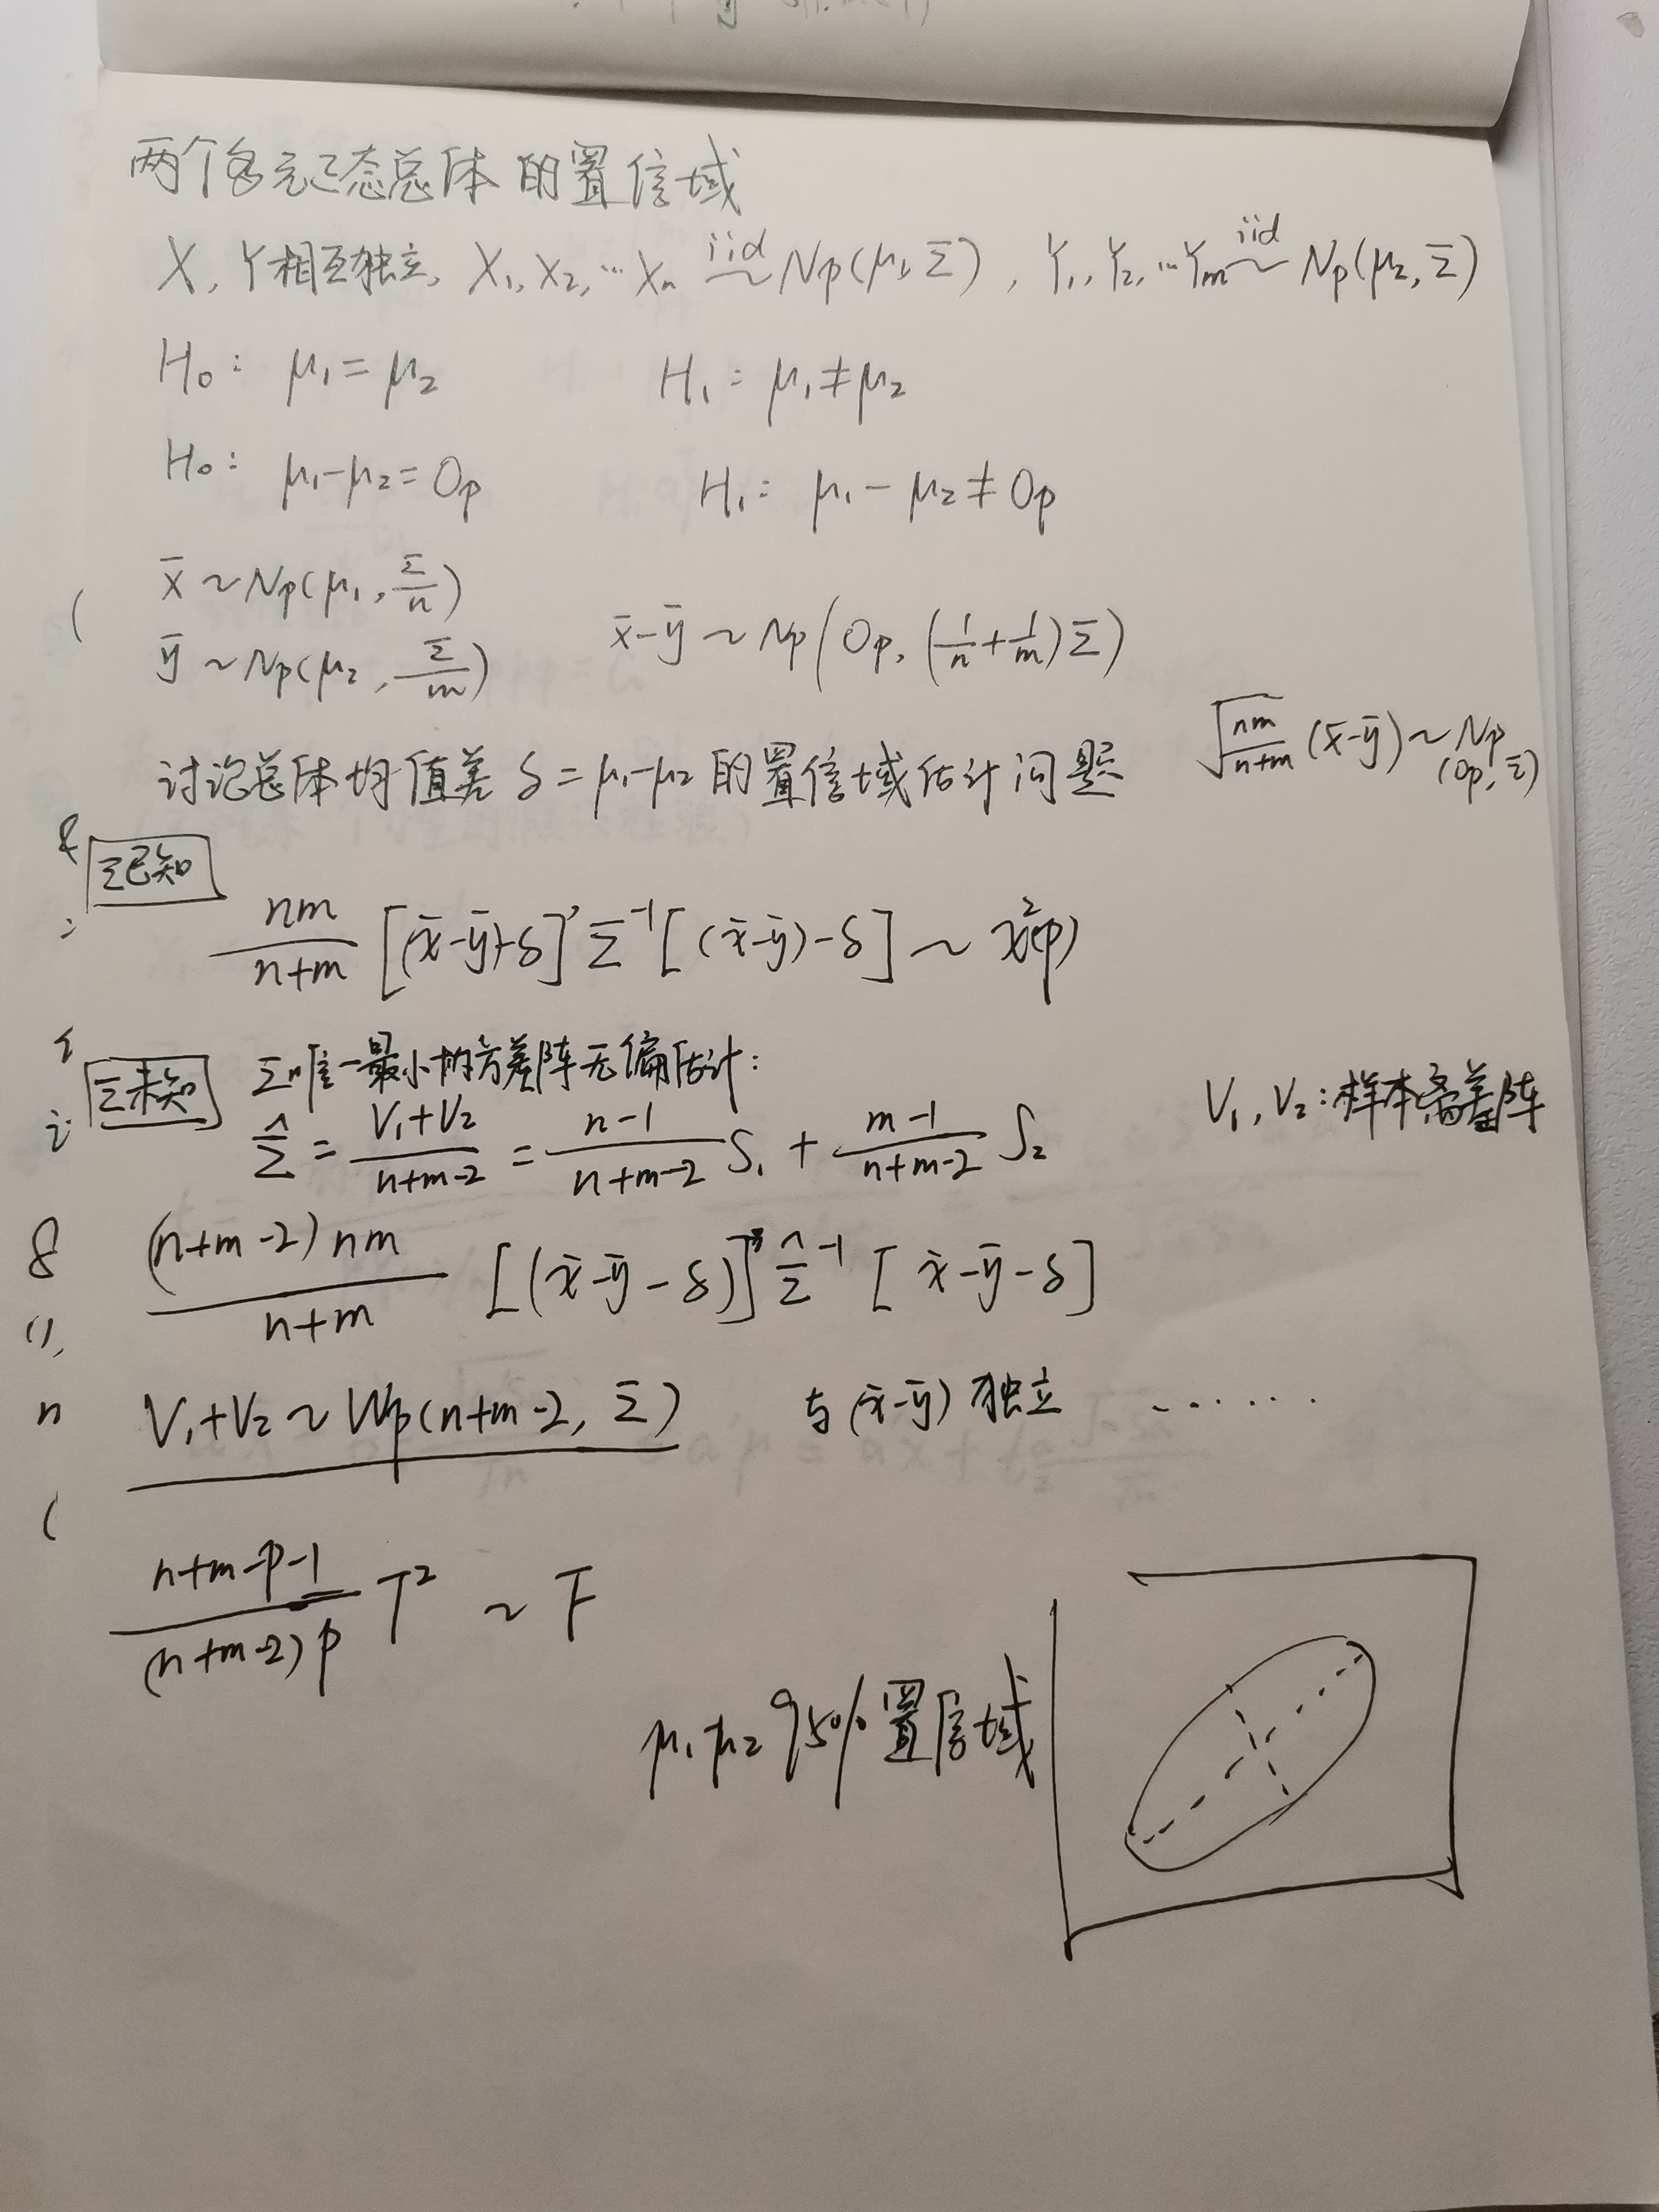 两个多元正态总体的置信域
X, Y相互独立, X₁, X₂, ⋯ Xₙ iid ~ Np(μ₁, Σ), Y₁, Y₂, ⋯ Yₘ iid ~ Np(μ₂, Σ)
H₀: μ₁ = μ₂    H₁: μ₁ ≠ μ₂
H₀: μ₁-μ₂ = Op    H₁: μ₁ - μ₂ ≠ Op
x̄ ~ Np(μ₁, Σ/n)
ȳ ~ Np(μ₂, Σ/m)    x̄-ȳ ~ Np(Op, (1/n + 1/m)Σ)
√(nm/(n+m)) (x̄-ȳ) ~ Np(Op, Σ)
讨论总体均值差 δ = μ₁-μ₂ 的置信域估计问题
Σ已知
nm/(n+m) [(x̄-ȳ)-δ]' Σ⁻¹ [(x̄-ȳ)-δ] ~ χ²(p)
Σ未知    Σ唯一最小协方差阵无偏估计:
Σ̂ = (V₁+V₂)/(n+m-2) = (n-1)/(n+m-2) S₁ + (m-1)/(n+m-2) S₂
V₁, V₂: 样本离差阵
(n+m-2)nm/(n+m) [(x̄-ȳ-δ)]' Σ̂⁻¹ [x̄-ȳ-δ]
V₁+V₂ ~ Wp(n+m-2, Σ)    与(x̄-ȳ)独立 ⋯⋯
(n+m-p-1)/((n+m-2)p) T² ~ F
μ₁ μ₂ 95% 置信域